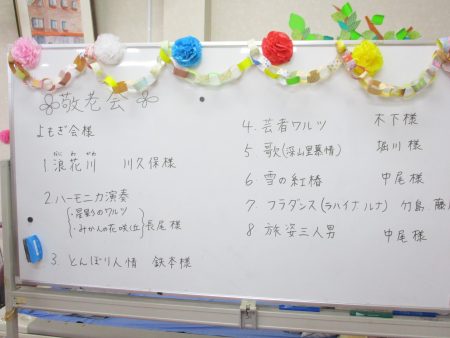 敬老会
よもぎ会様
1. 浪花川 川久保様
なにわがわ
2. ハーモニカ演奏
・星影のワルツ
・みかんの花咲く丘 長尾様
3. とんぼり人情 鉄本様
4. 芸者ワルツ 木下様
5. 歌(深山里慕情) 堀川様
6. 雪の紅椿 中尾様
7. フラダンス(ラハイナルナ) 竹島
8 旅姿三人男 中尾様